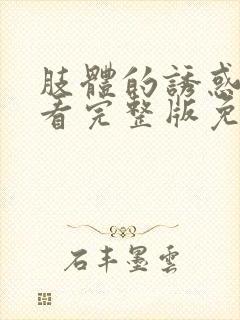 肢體的誘惑
看完整版免
石丰墨雲